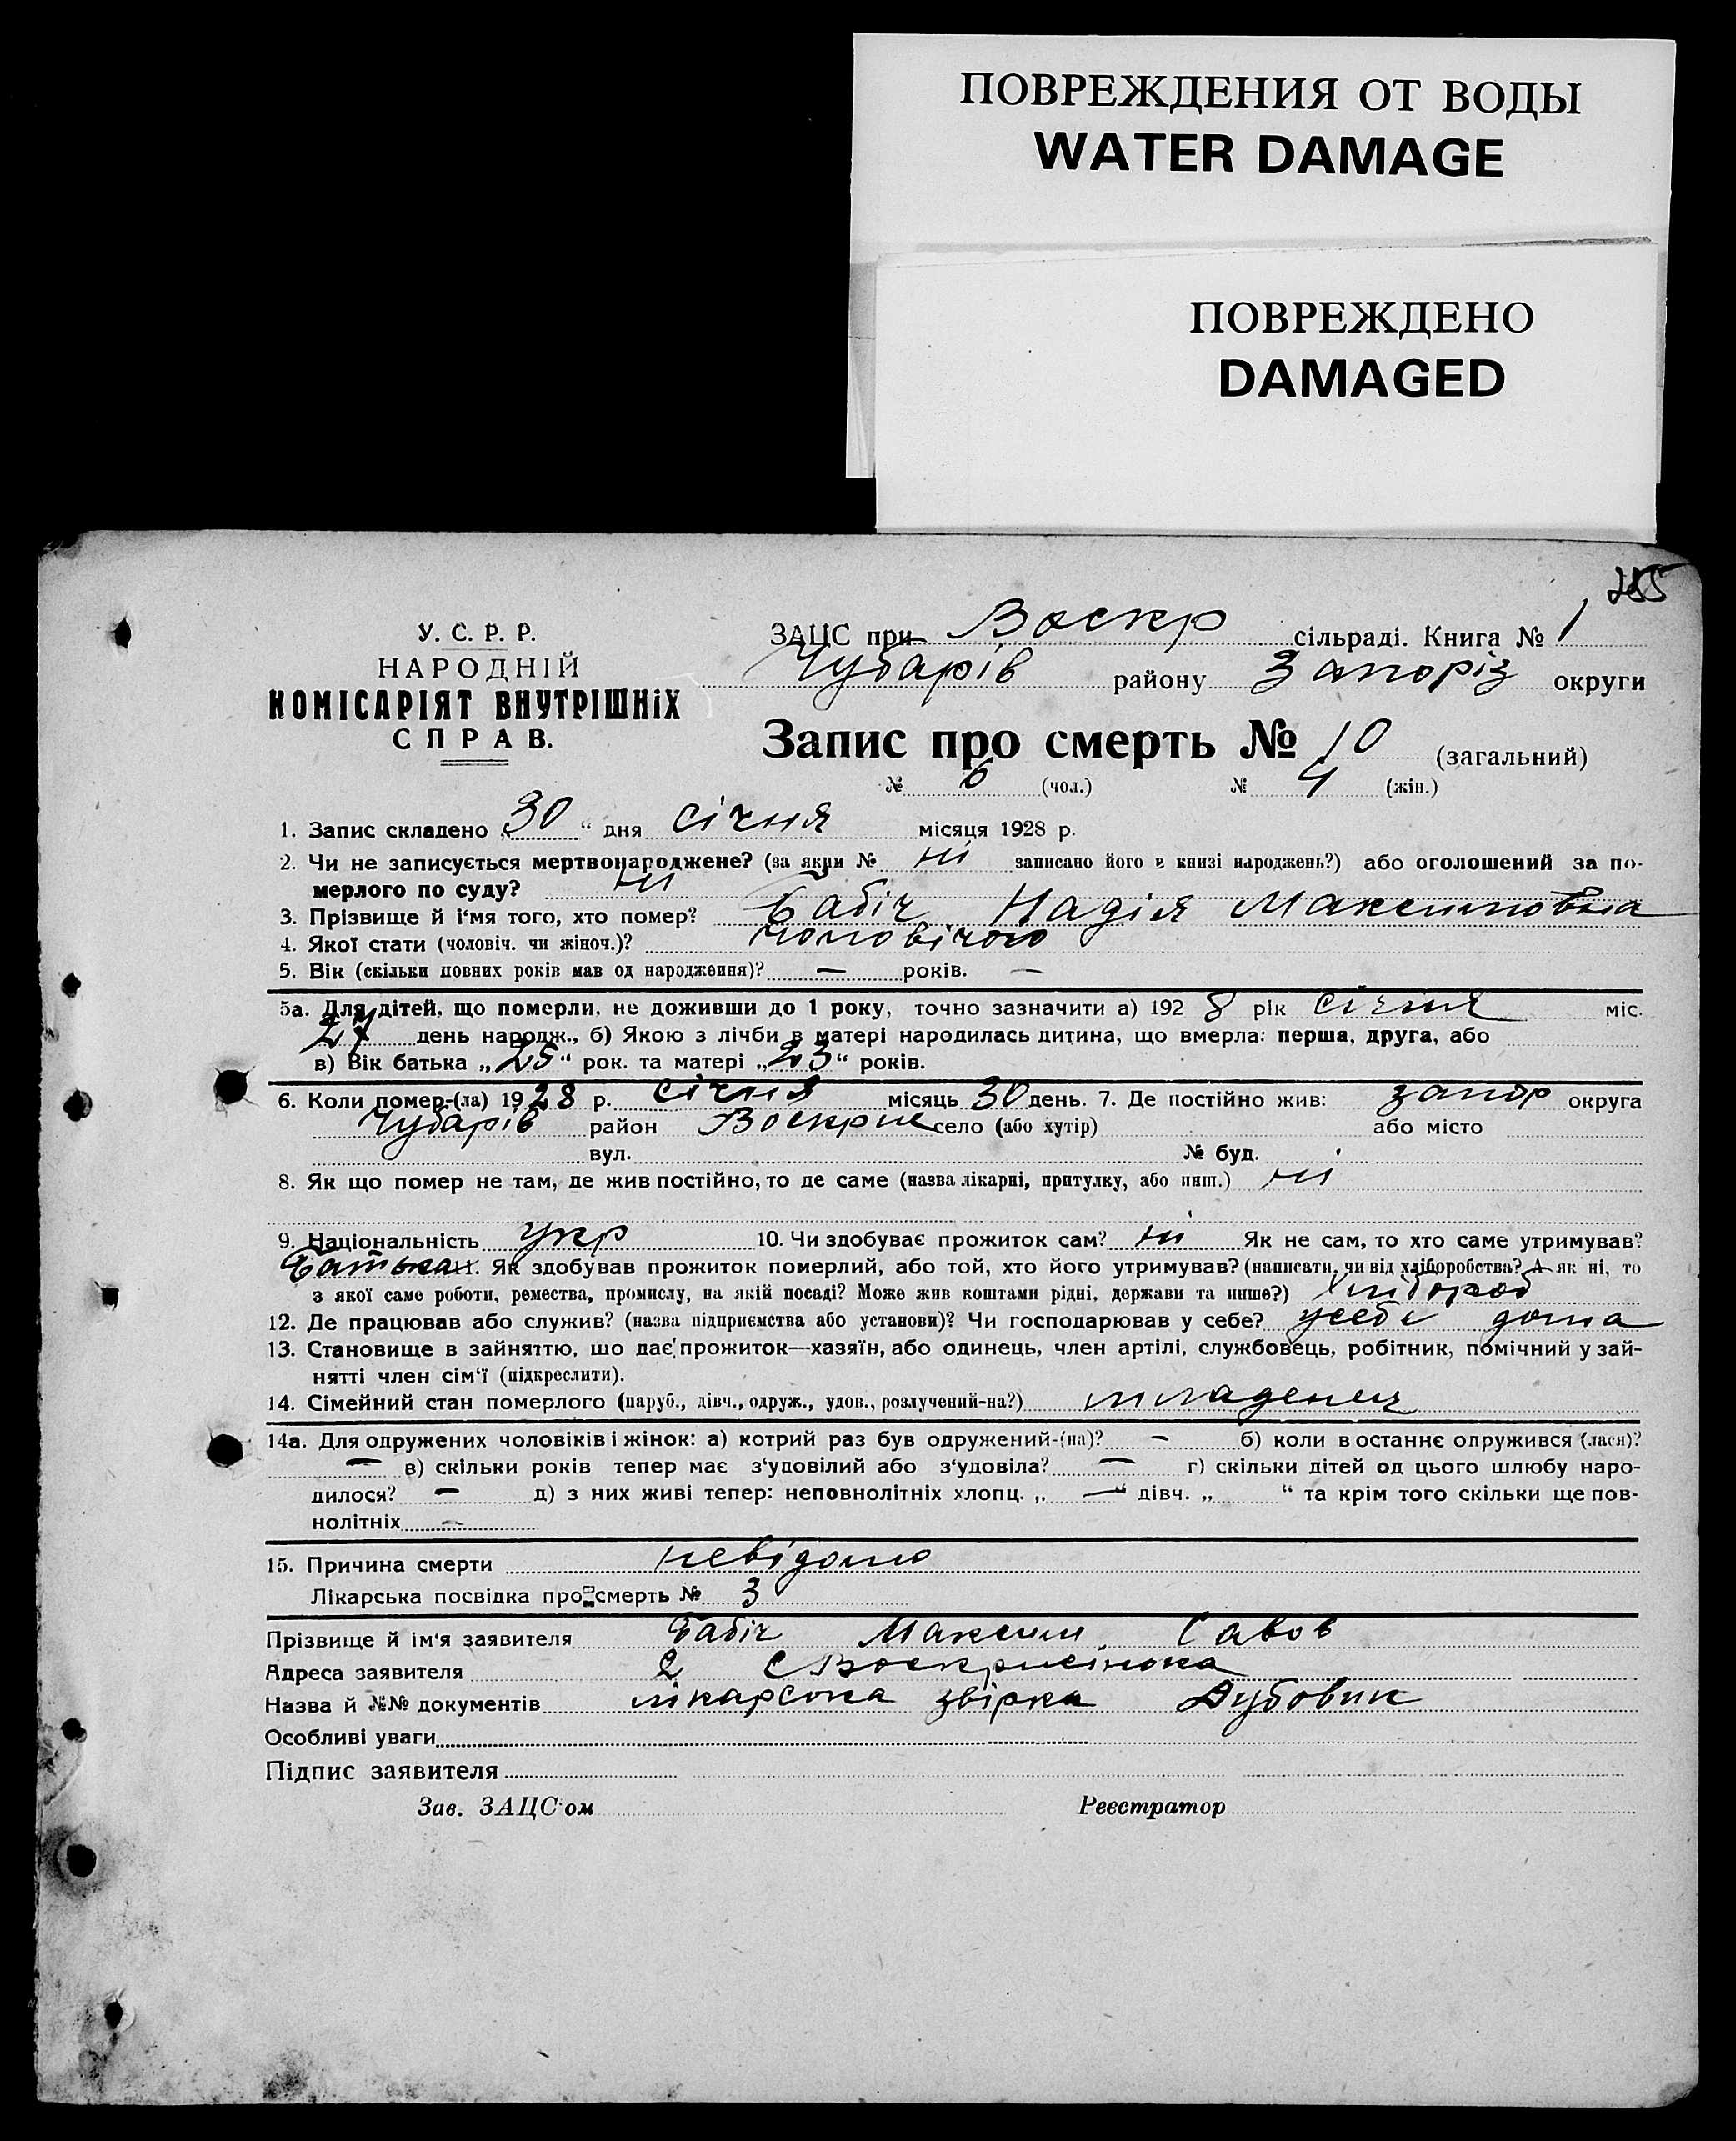 ПОВРЕЖДЕНИЯ ОТ ВОДЫ
WATER DAMAGE
ПОВРЕЖДЕНО
DAMAGED
255
У. С. Р. Р.
НАРОДНІЙ
КОМІСАРІЯТ ВНУТРІШНІХ
СПРАВ.
ЗАЦС при Воскр сільраді. Книга № 1
Чубарів району Запоріз округи
Запис про смерть № 10 (загальний)
№ 6 (чол.) № 4 (жін.)
1. Запис складено „30“ дня січня місяця 1928 р.
2. Чи не записується мертвонароджене? (за яким № ні записано його в книзі народжень?) або оголошений за по-
мерлого по суду? ні
3. Прізвище й і‘мя того, хто помер? Бабіч Надія Максимовна
4. Якої стати (чоловіч. чи жіноч.)? чоловічого
5. Вік (скільки повних років мав од народження)? — років. —
5а. Для дітей, що померли, не доживши до 1 року, точно зазначити а) 1928 рік січня міс.
27 день народж., б) Якою з лічби в матері народилась дитина, що вмерла: перша, друга, або
в) Вік батька „25“ рок. та матері „23“ років.
6. Коли помер-(ла) 1928 р. січня місяць 30 день. 7. Де постійно жив: запор округа
Чубарів район Воскрис село (або хутір) або місто
вул. № буд.
8. Як що помер не там, де жив постійно, то де саме (назва лікарні, притулку, або инш.) ні
9. Національність укр 10. Чи здобуває прожиток сам? ні Як не сам, то хто саме утримував?
Батька 11. Як здобував прожиток померлий, або той, хто його утримував? (написати, чи від хліборобства? А як ні, то
з якої саме роботи, ремества, промислу, на якій посаді? Може жив коштами рідні, держави та инше?) хлібороб
12. Де працював або служив? (назва підприємства або установи)? Чи господарював у себе? усебе дома
13. Становище в зайняттю, що дає прожиток—хазяїн, або одинець, член артілі, службовець, робітник, помічний у зай-
нятті член сім‘ї (підкреслити).
14. Сімейний стан померлого (паруб., дівч., одруж., удов., розлучений-на?) младенец
14а. Для одружених чоловіків і жінок: а) котрий раз був одружений-(на)? — б) коли востаннє опружився (лася)?
— в) скільки років тепер має з‘удовілий або з‘удовіла? — г) скільки дітей од цього шлюбу наро-
дилося? — д) з них живі тепер: неповнолітніх хлопц. „ —“ дівч. „ “ та крім того скільки ще пов-
нолітніх —
15. Причина смерти невідомо
Лікарська посвідка про смерть № 3
Прізвище й ім‘я заявителя Бабіч Максим Савов
Адреса заявителя с Воскрисінска
Назва й №№ документів лікарська звірка Дубовик
Особливі уваги
Підпис заявителя
Зав. ЗАЦС‘ом Реєстратор